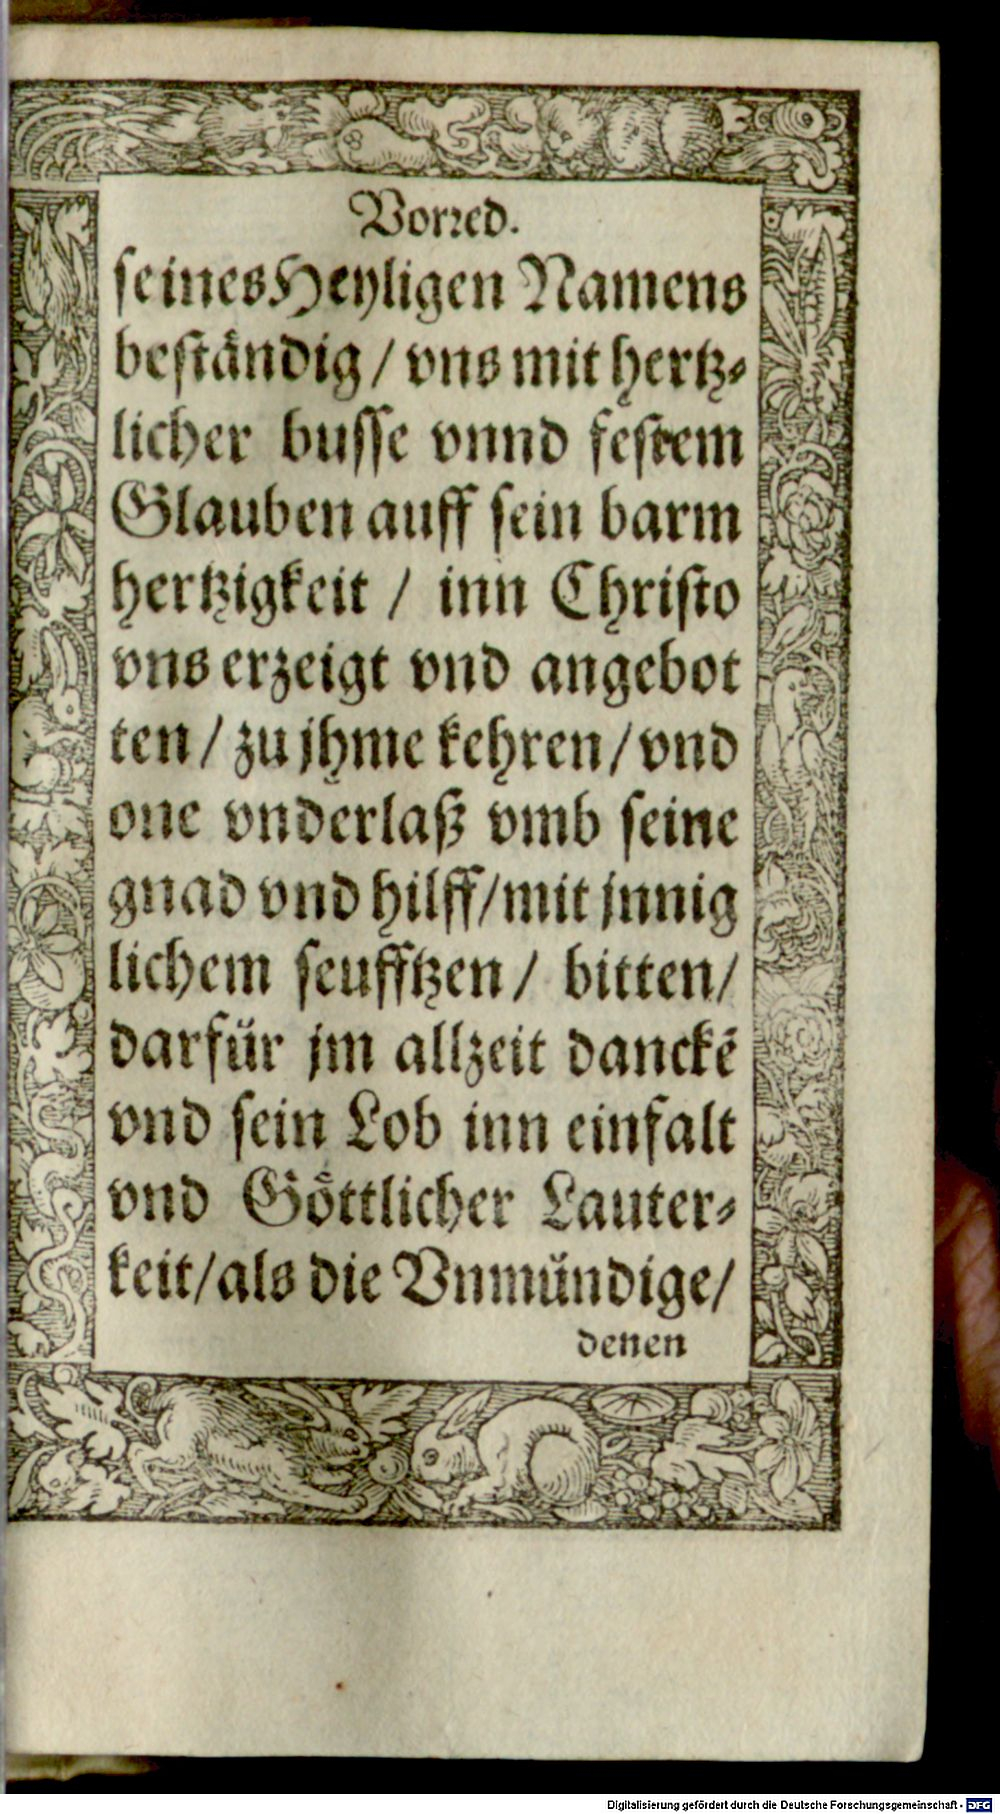 Vorred.
seines Heyligen Namens
beständig / vns mit hertz⸗
licher busse vnnd festem
Glauben auff sein barm
hertzigkeit / inn Christo
vns erzeigt vnd angebot
ten / zu jhme kehren / vnd
one vnderlaß vmb seine
gnad vnd hilff / mit jnnig
lichem seufftzen / bitten /
darfür jm allzeit danckẽ
vnd sein Lob inn einfalt
vnd Göttlicher Lauter⸗
keit / als die Vnmündige /
denen
Digitalisierung gefördert durch die Deutsche Forschungsgemeinschaft - DFG